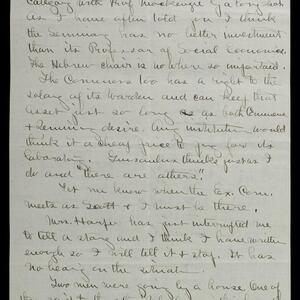 Calgary with Prof Mackenzie
as I have often told you I think
the Seminary has no better investment
than its Professor of Social Economics.
The Hebrew chair is nowhere so important.
The Commons too has a right to the
salary of its Warden and can keep that
asset just so long as both Commons
& Seminary desire. Any institution would
think it a cheap price to pay for its
laboratory. thinks just as I
do and "there are others".
Let me know when the Ex. Com.
meets as I must be there.
Mrs. Harper has just interrupted me
to tell a story and I think I have written
enough so I will tell it & stop. It has
no bearing on the
Two men were going by a house. One of